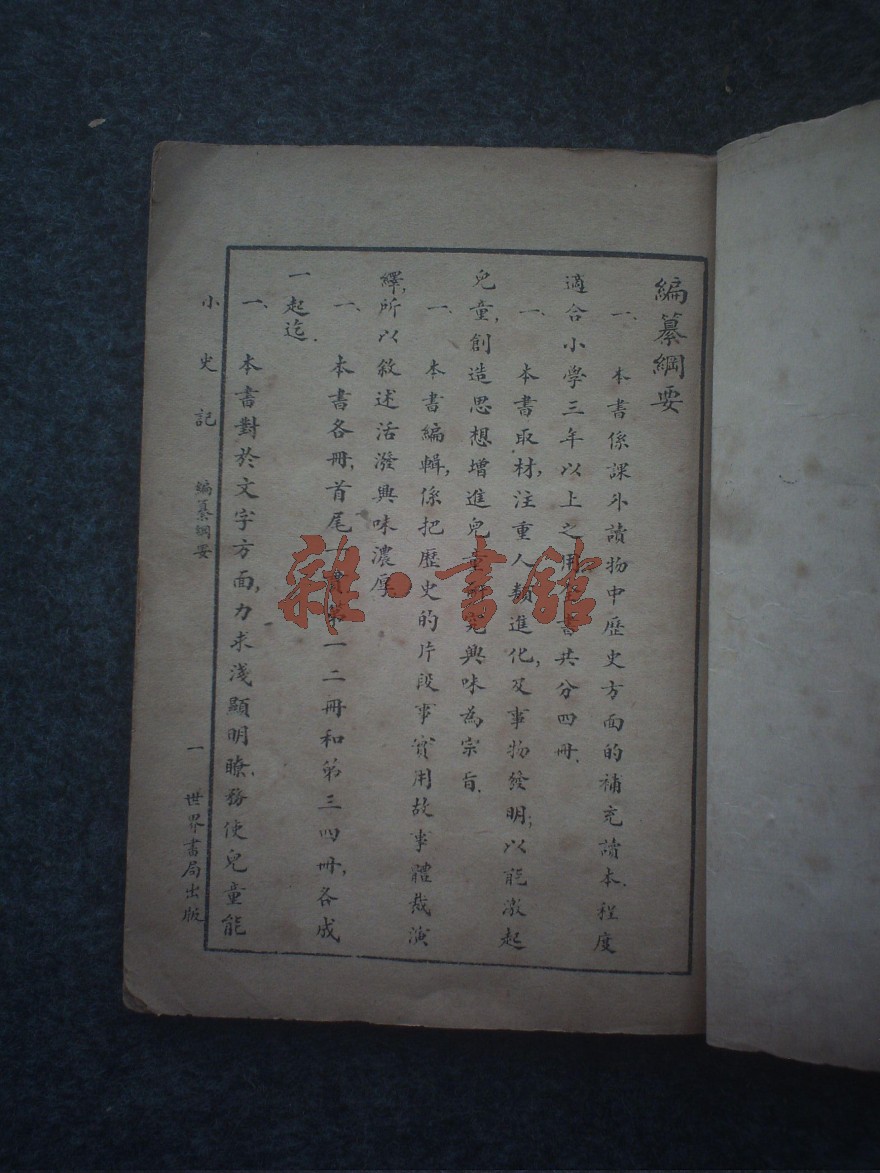 編纂綱要
一、本書係課外讀物中歷史方面的補充讀本．程度
適合小學三年以上之用全書共分四冊．
一、本書取材，注重人類進化，及事物發明；以能激起
兒童，創造思想增進兒童研究興味為宗旨．
一、本書編輯，係把歷史的片段事實用故事體裁演
繹，所以敘述活潑興味濃厚
一、本書各冊，首尾一貫第一二冊和第三四冊，各成
一起迄．
一、本書對於文字方面，力求淺顯明瞭．務使兒童能
小史記 編纂綱要 一 世界書局出版
雜·書館